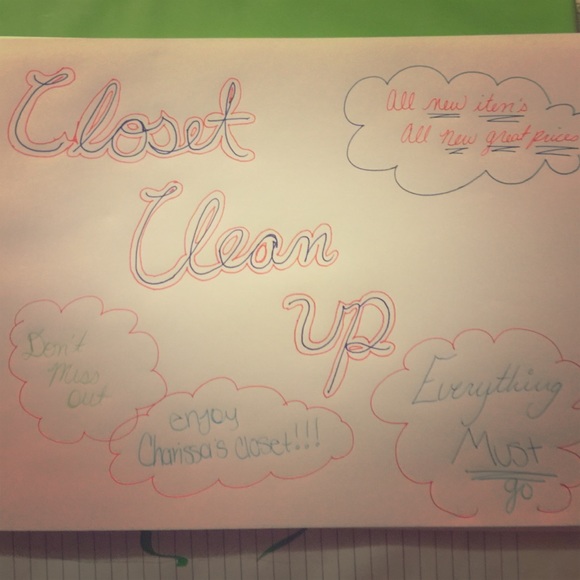 Closet
Clean
up
All new item's
All new great prices
Don't
Miss
out
enjoy
Charissa's closet!!!
Everything
Must
go